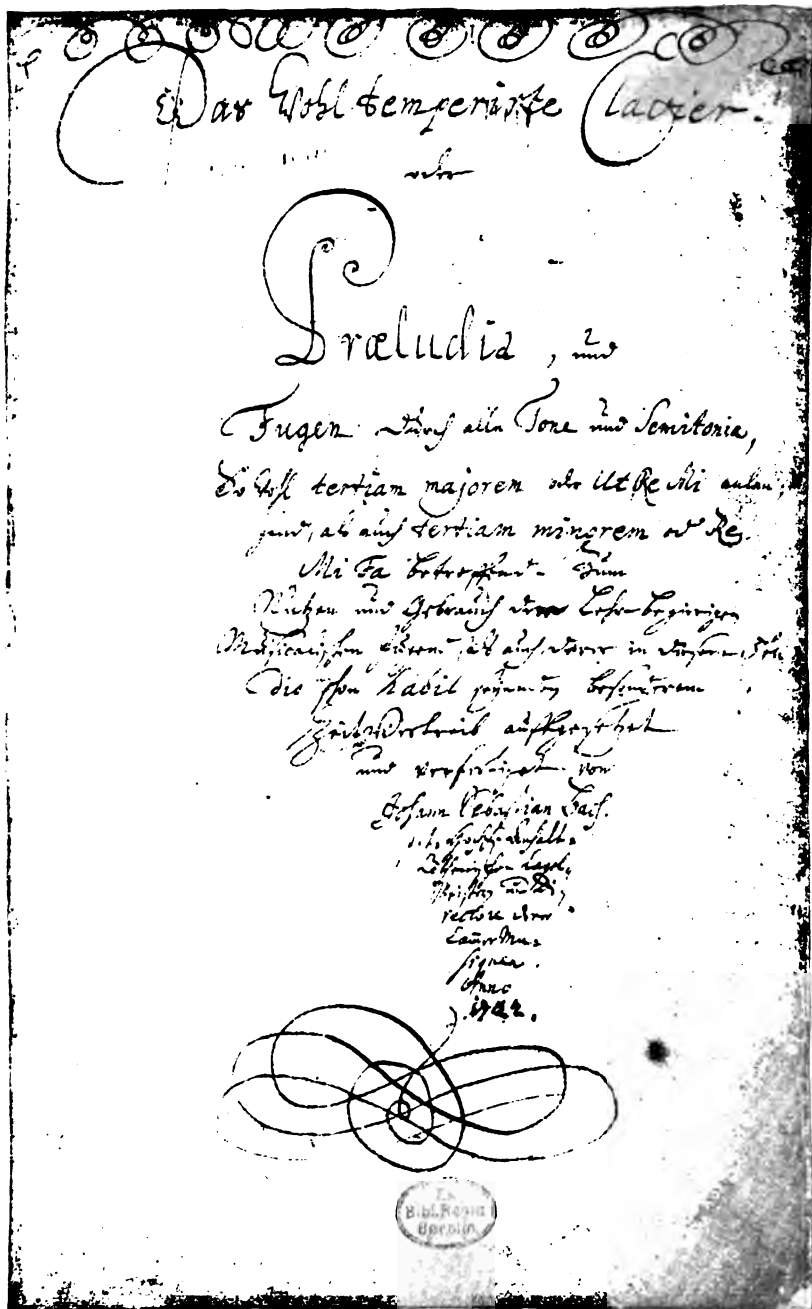 Das Wohltemperirte Clavier.
oder
Præludia, und
Fugen durch alle Tone und Semitonia,
So wohl tertiam majorem oder Ut Re Mi anlan,
gend, als auch tertiam minorem oder Re
Mi Fa betreffend. Zum
Nutzen und Gebrauch der Lehr-begierigen
Musicalischen Jugend, als auch derer in diesem stu,
dio schon habil seyenden besonderem
ZeitVertreib auffgesetzet
und verfertiget von
Johann Sebastian Bach.
p. t. HochFürstl. Anhalt-
Cöthenischen Capel,
Meistern und Di,
rectore derer
CammerMu-
siquen.
Anno
1722.
Ex
Bibl. Regia
Berolin.